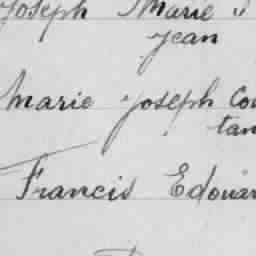 Joseph Marie
Jean
Marie Joseph Con
tan
Francis Edouar